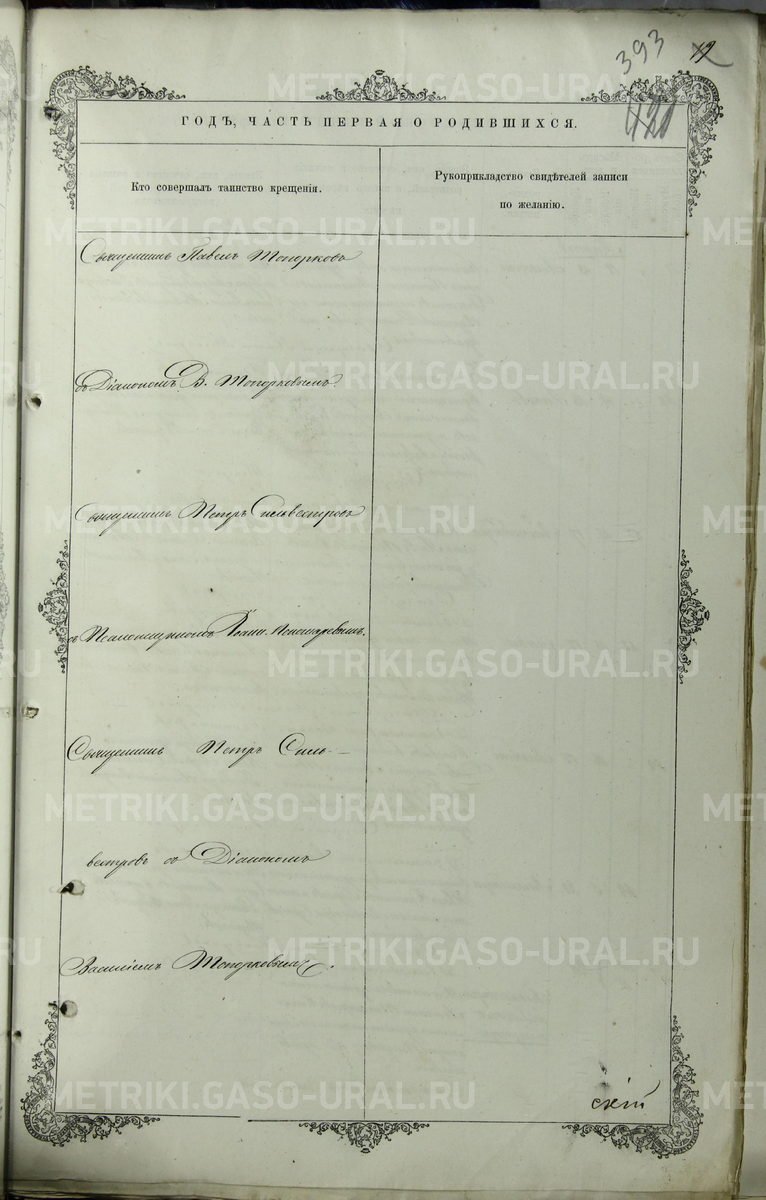 393
ГОДЪ, ЧАСТЬ ПЕРВАЯ О РОДИВШИХСЯ.
Кто совершалъ таинство крещенія.
Рукоприкладство свидѣтелей записи
по желанію.
Священникъ Павелъ Топорковъ
съ Діакономъ В. Топорковымъ.
Священникъ Петръ Сильвестровъ
съ Псаломщикомъ Іоанн. Пономаревымъ.
Священникъ Петръ Силь-
вестровъ съ Діакономъ
Василіемъ Топорковымъ.
скій
METRIKI.GASO-URAL.RU